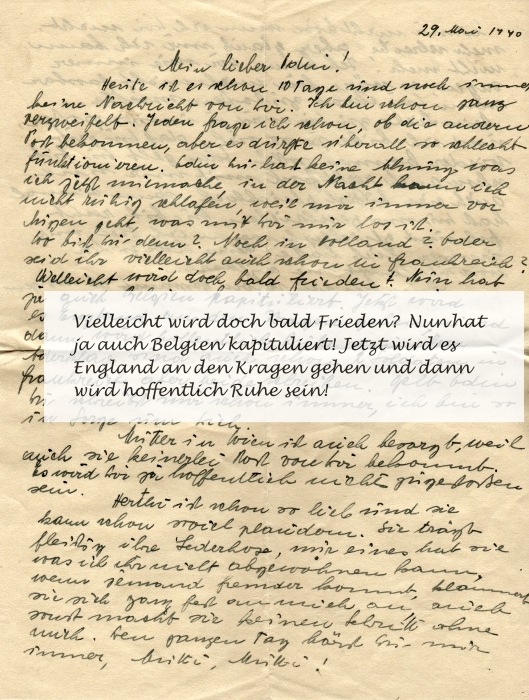 29. Mai 1940
Mein lieber Edin!
Heute ist es schon 10 Tage und noch immer
keine Nachricht von Dir. Ich bin schon ganz
verzweifelt. Jeden frage ich schon, ob die andern
Post bekommen, aber es dürfte überall so schlecht
funktionieren. Edin Du hast keine Ahnung was
ich jetzt mitmache, in der Nacht kann ich
nicht ruhig schlafen, weil mir immer vor
Augen geht, was mit Dir mir los ist.
Wo bist Du denn? Noch in Holland? oder
seid ihr vielleicht auch schon in Frankreich?
Vielleicht wird doch bald Frieden? Nun hat
ja auch Belgien kapituliert. Jetzt wird
Vielleicht wird doch bald Frieden? Nunhat
ja auch Belgien kapituliert! Jetzt wird es
England an den Kragen gehen und dann
wird hoffentlich Ruhe sein!
in Sorge
Mutter in Wien ist auch besorgt, weil
auch sie keinerlei Post von Dir bekommt.
Es wird Dir ja hoffentlich nicht zugestoßen
sein.
Hertli ist schon so lieb und sie
kann schon soviel plaudern. Sie trägt
fleißig ihre Lederhose, nur eines hat sie
was ich ihr nicht abgewöhnen kann,
wenn jemand fremder kommt, klammert
sie sich ganz fest an mich an, auch
sonst macht sie keinen Schritt ohne
mich. Den ganzen Tag hörst Du nur
immer, Mutti, Mutti!